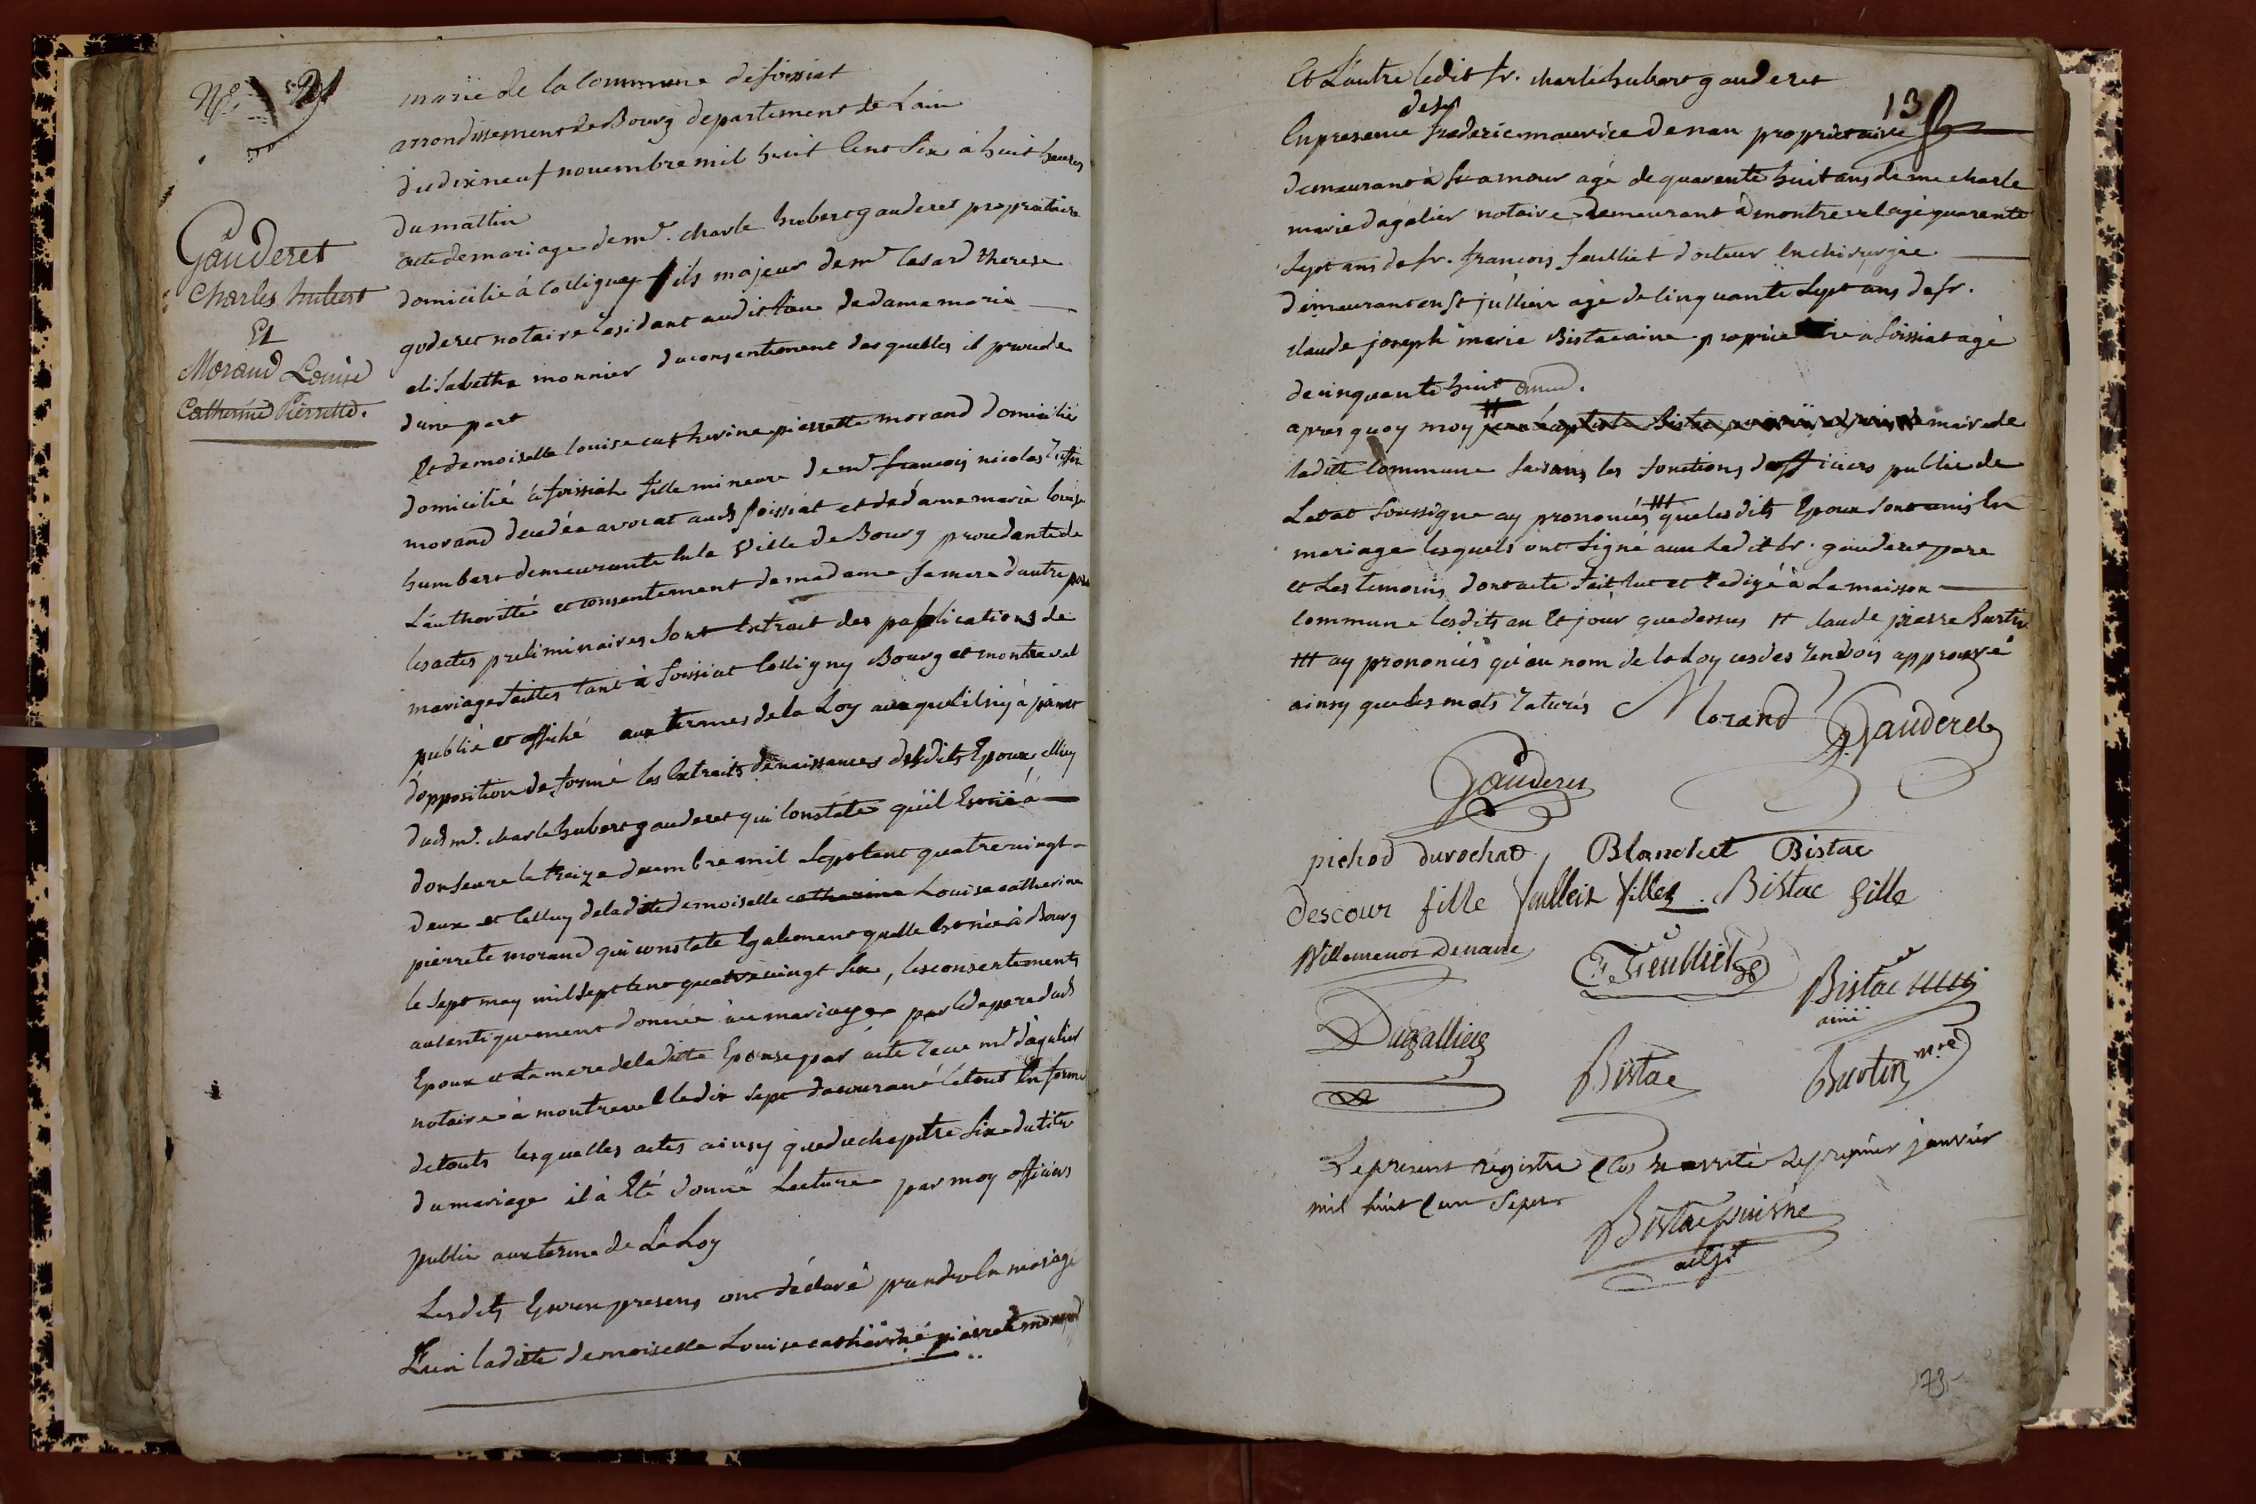 N° 21
Gauderet
Charles hubert
Et
Morand Louise
Catherine Pierrette.
mairie de la Commune de foissiat
arrondissement de Bourg departement de Lain
du dix neuf novembre mil huit Cent Six à huit heures
du mattin
acte de mariage de mr. charle hubert gauderet propriétaire
domicilié à Colligny fils majeur de mr Cesard therese
goderet notaire residant audit lieu de dame marie
elisabethe monnier du consentement desquelles il procede
dune part
Et demoiselle louise catherine pierrette morand domicilié
domicilié à foissiat fille mineure de mr francois nicolas
morand decedée avocat audt foissiat et de dame marie louise
humbert demeurante en la Ville de Bourg procedante de
L'authorité et consentement de madame sa mere dautre part
les actes preliminaires sont Extrait des publications de
mariage faittes tant à foissiat Colligny Bourg et montrevel
publié et affiché aux termes de la Loy auquel il n'y à point
d'opposition de formé les Extraits de naissances desdits Epoux, celluy
dudt mr. charle hubert gauderet qui Constate qu'il Est né à
donseure le treize decembre mil Sept Cent quatre vingt
deux et Celluy de ladite demoiselle catherine Louise catherine
pierrete morand qui constate Egalement quelle Est née à Bourg
le sept may mil sept Cent quatre vingt Six, les consentements
autentiquement donnée au mariage par le pere dudt
Epoux et La mere de laditte Epouse par acte recue mr dagalier
notaire à montrevel le dix sept du courant le tout En forme
detouts lesquelles actes ainsy que du chapitre Six du titre
du mariage il à Eté donné Lecture par moy officiers
public aux terme de La Loy
Lesdits Epoux presens ont déclaré prendre En mariage
L'un laditte demoiselle Louise catherine pierrete morand
Et L'autre ledit sr. charle hubert gauderet
13
desr
En presence frederic maurice Denan propriétaire
demeurant à St amour agé de quarante huit ans de me charle
marie dagalier notaire demeurant à montrevel agé quarente
Sept ans de sr. francois feuilliet docteur En chirurgie
demeurant en St jullien agé de Cinquante Sept ans de sr.
claude joseph marie Bistac aine proprietaire à foissiat agé
de cinquante huit
apres quoy moy # maire de
laditte Commune faisant les fonctions d'officiers public de
Letat Soussigne ay prononcés ### que lesdits Epoux Sont unis En
mariage lesquels ont Signé avec Ledit sr. gauderet pere
et Les temoins dont acte fait lut et redigé à La maison
Commune lesdits an Et jour que dessus # claude pierre Burtin
### ay prononcés qu'au nom de la Loy cesdes renvois approuvé
ainsy que les mots raturés
Morand Gauderet
Gauderet
pichod durochat Blanchet Bistac
descour fille feulliet filles Bistac fille
Villemenot Denane
F Feulliet
Bistac
ainé
Dagallier
Bistac
Burtin mre
Le present régistre Clos et arrété Le premier janvier
mil huit Cent Sept
Bistac puisné
adjt
73